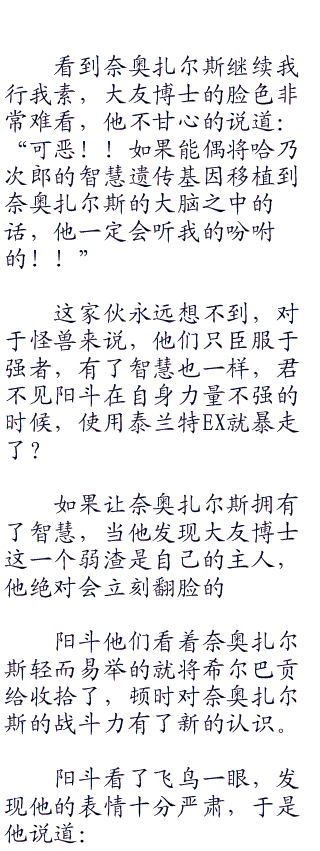 看到奈奥扎尔斯继续我
行我素，大友博士的脸色非
常难看，他不甘心的说道：
“可恶！！如果能偶将哈乃
次郎的智慧遗传基因移植到
奈奥扎尔斯的大脑之中的
话，他一定会听我的吩咐
的！！”
这家伙永远想不到，对
于怪兽来说，他们只臣服于
强者，有了智慧也一样，君
不见阳斗在自身力量不强的
时候，使用泰兰特EX就暴走
了？
如果让奈奥扎尔斯拥有
了智慧，当他发现大友博士
这一个弱渣是自己的主人，
他绝对会立刻翻脸的
阳斗他们看着奈奥扎尔
斯轻而易举的就将希尔巴贡
给收拾了，顿时对奈奥扎尔
斯的战斗力有了新的认识。
阳斗看了飞鸟一眼，发
现他的表情十分严肃，于是
他说道：